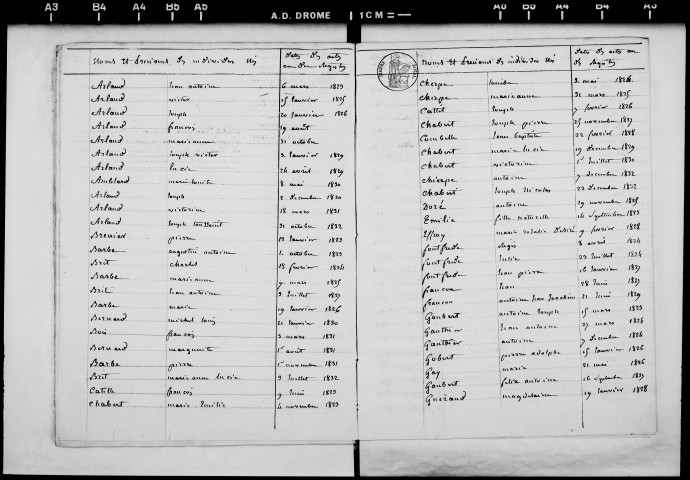 A3 B4 A4 B5 A5 A.D. DROME 1CM A5 B5 A4 B4 A3
Noms et Prénoms des individus nés
Dates des actes
Arland jean antoine 6 mars 1823
Arland victor 15 janvier 1825
Arland joseph 20 janvier 1826
Arland françois 19 août
Arland marie anne 31 octobre
Arland joseph victor 2 janvier 1829
Arland lucie 24 avril 1829
Amblard marie louise 8 mai 1830
Arland joseph 2 décembre 1830
Arland victorine 18 mars 1831
Arland joseph toussaint 31 octobre 1832
Brenier pierre 13 janvier 1823
Barbe augustin antoine 4 octobre 1823
Brit charles 18 février 1824
Barbe marie anne 7 mars 1825
Brit jean antoine 3 juillet 1827
Barbe marie 19 janvier 1826
Bernard michel louis 21 janvier 1830
Bois françois 3 mars 1831
Bernard marguerite 1er août 1831
Barbe pierre 1er novembre 1831
Brit marie anne lucie 3 juillet 1832
Catille françois 9 juin 1823
Chabert marie Emilie 4 novembre 1823
Noms et Prénoms des individus nés
Dates des actes ou
des Registres
Cherpe louise 3 mai 1826
Cherppe marie anne 31 mars 1825
Cattil joseph 7 février 1826
Chabert joseph pierre 25 novembre 1827
Combelle jean baptiste 22 février 1828
Chabert marie lucie 19 décembre 1829
Chabert victorine 1er juillet 1830
Chierpe antoine 7 décembre 1832
Chabert joseph nicolas 22 décembre 1832
Doré antoine 29 novembre 1825
Emilie fille naturelle 14 septembre 1823
Effroy marie 9 février 1828
fontfrede régis 8 avril 1824
fontfrede julie 22 juillet 1824
fontfrede jean pierre 16 janvier 1827
françon jean 28 juin 1827
françon antoine jean joachim 21 juin 1829
Goubert antoine joseph 15 mars 1823
Gauthier jean antoine 27 mars 1824
Gauthier antoine 7 décembre 1824
Gobert pierre adolphe 15 janvier 1826
Gay marie 21 mai 1826
Goubert félix antoine 16 septembre 1827
Guéraud magdelaine 19 janvier 1828